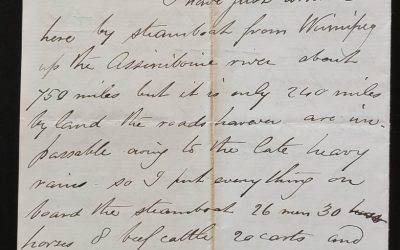 I have just
here by steamboat from Winnipeg
up the Assiniboine river about
750 miles but it is only 240 miles
by land the roads however are im-
passable owing to the late heavy
rains - so I put everything on
board the steamboat 26 men 30
horses 8 beef cattle 20 carts and